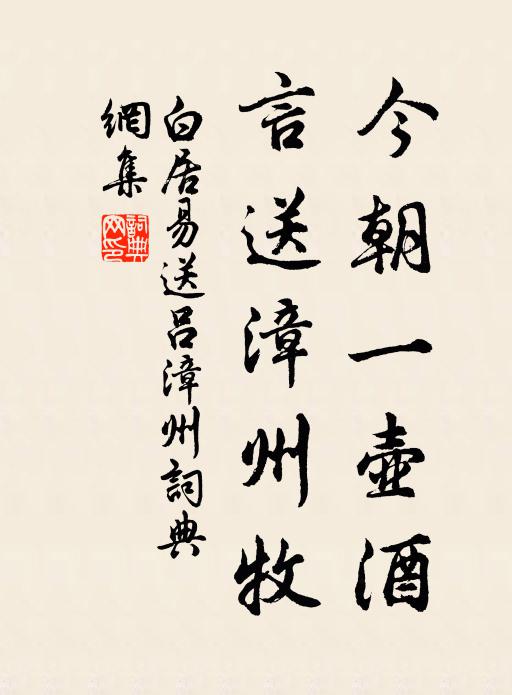 今朝一壺酒
言送漳州牧
白居易送呂漳州詞典
網集
詞典
网印